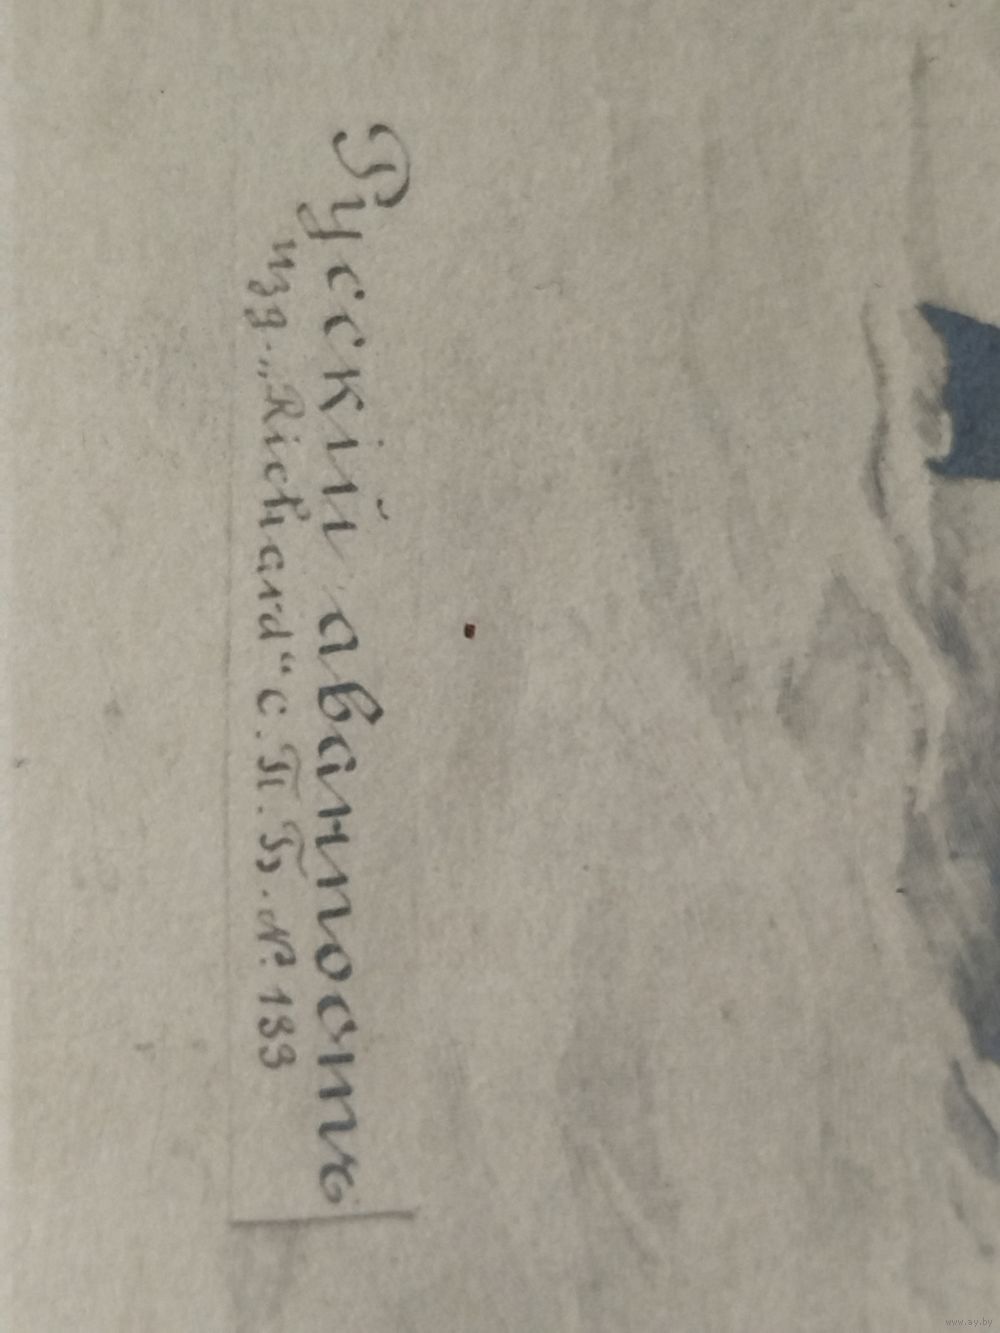 Русскій аванпостъ
изд. „Richard“ С. П. Б. №. 139
www.ay.by